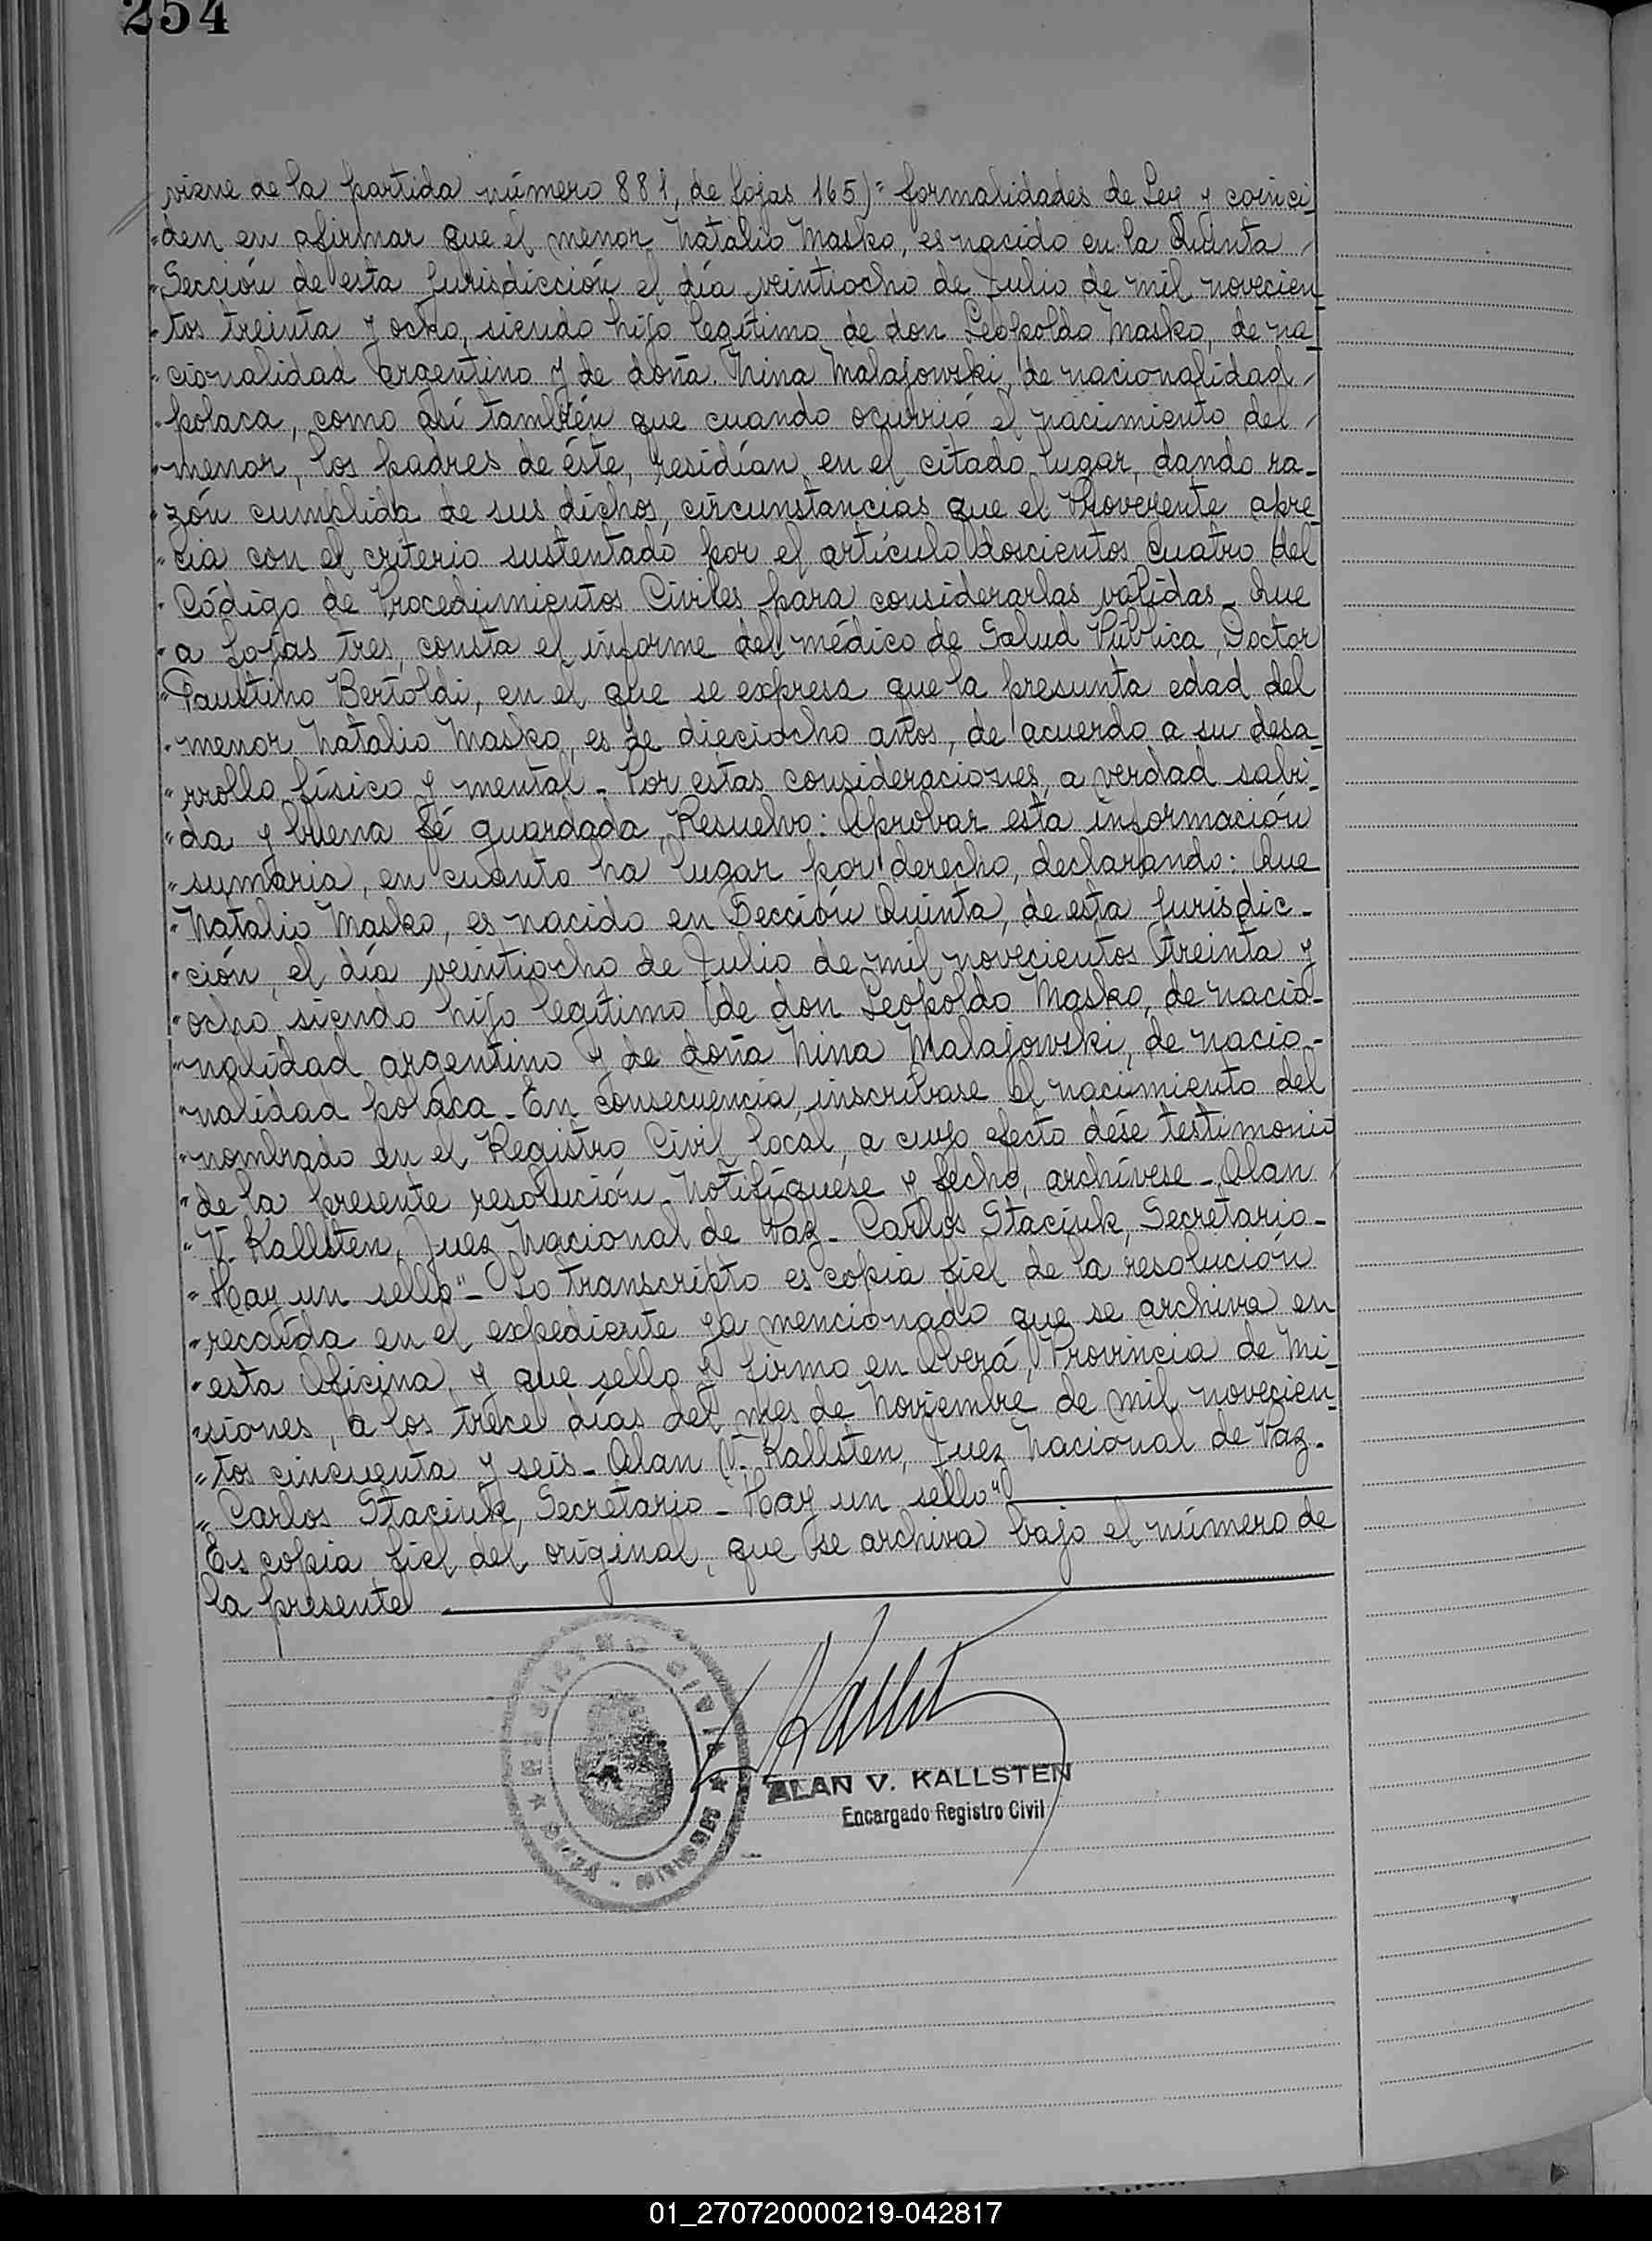 254
viene de la partida número 881, de fojas 165)" formalidades de Ley y coinci-
"den en afirmar que el menor Natalio Masko, es nacido en la Quinta
"Sección de esta Jurisdicción el día veintiocho de Julio de mil novecien-
"tos treinta y ocho, siendo hijo legítimo de don Leopoldo Masko, de na-
"cionalidad argentino y de doña Nina Malajowski, de nacionalidad
"polaca, como así también que cuando ocurrió el nacimiento del
"menor, los padres de éste, residían en el citado lugar, dando ra-
"zón cumplida de sus dichos, circunstancias que el Proveyente apre-
"cia con el criterio sustentado por el artículo doscientos cuatro del
"Código de Procedimientos Civiles para considerarlas válidas- Que
"a fojas tres, consta el informe del médico de Salud Pública, Doctor
"Faustino Bertoldi, en el que se expresa que la presunta edad del
"menor Natalio Masko, es de dieciocho años, de acuerdo a su desa-
"rrollo físico y mental- Por estas consideraciones, a verdad sabi-
"da y buena fé guardada, Resuelvo: Aprobar esta información
"sumaria, en cuanto ha lugar por derecho, declarando: Que
"Natalio Masko, es nacido en Sección Quinta, de esta Jurisdic-
"ción, el día veintiocho de Julio de mil novecientos treinta y
"ocho, siendo hijo legítimo de don Leopoldo Masko, de nacio-
"nalidad argentino y de doña Nina Malajowski, de nacio-
"nalidad polaca- En consecuencia, inscríbase el nacimiento del
"nombrado en el Registro Civil local, a cuyo efecto dése testimonio
"de la presente resolución- Notifíquese y fecho, archívese- Alan
"V. Kallsten, Juez Nacional de Paz- Carlos Staciuk, Secretario-
"Hay un sello"- Lo transcripto es copia fiel de la resolución
"recaída en el expediente ya mencionado que se archiva en
"esta Oficina, y que sello y firmo en Oberá, Provincia de Mi-
"siones, a los trece días del mes de Noviembre de mil novecien-
"tos cincuenta y seis- Alan V. Kallsten, Juez Nacional de Paz-
"Carlos Staciuk, Secretario- Hay un sello"
Es copia fiel del original, que se archiva bajo el número de
la presente
REGISTRO CIVIL
OBERÁ - MISIONES
Kallst
ALAN V. KALLSTEN
Encargado Registro Civil
01_270720000219-042817